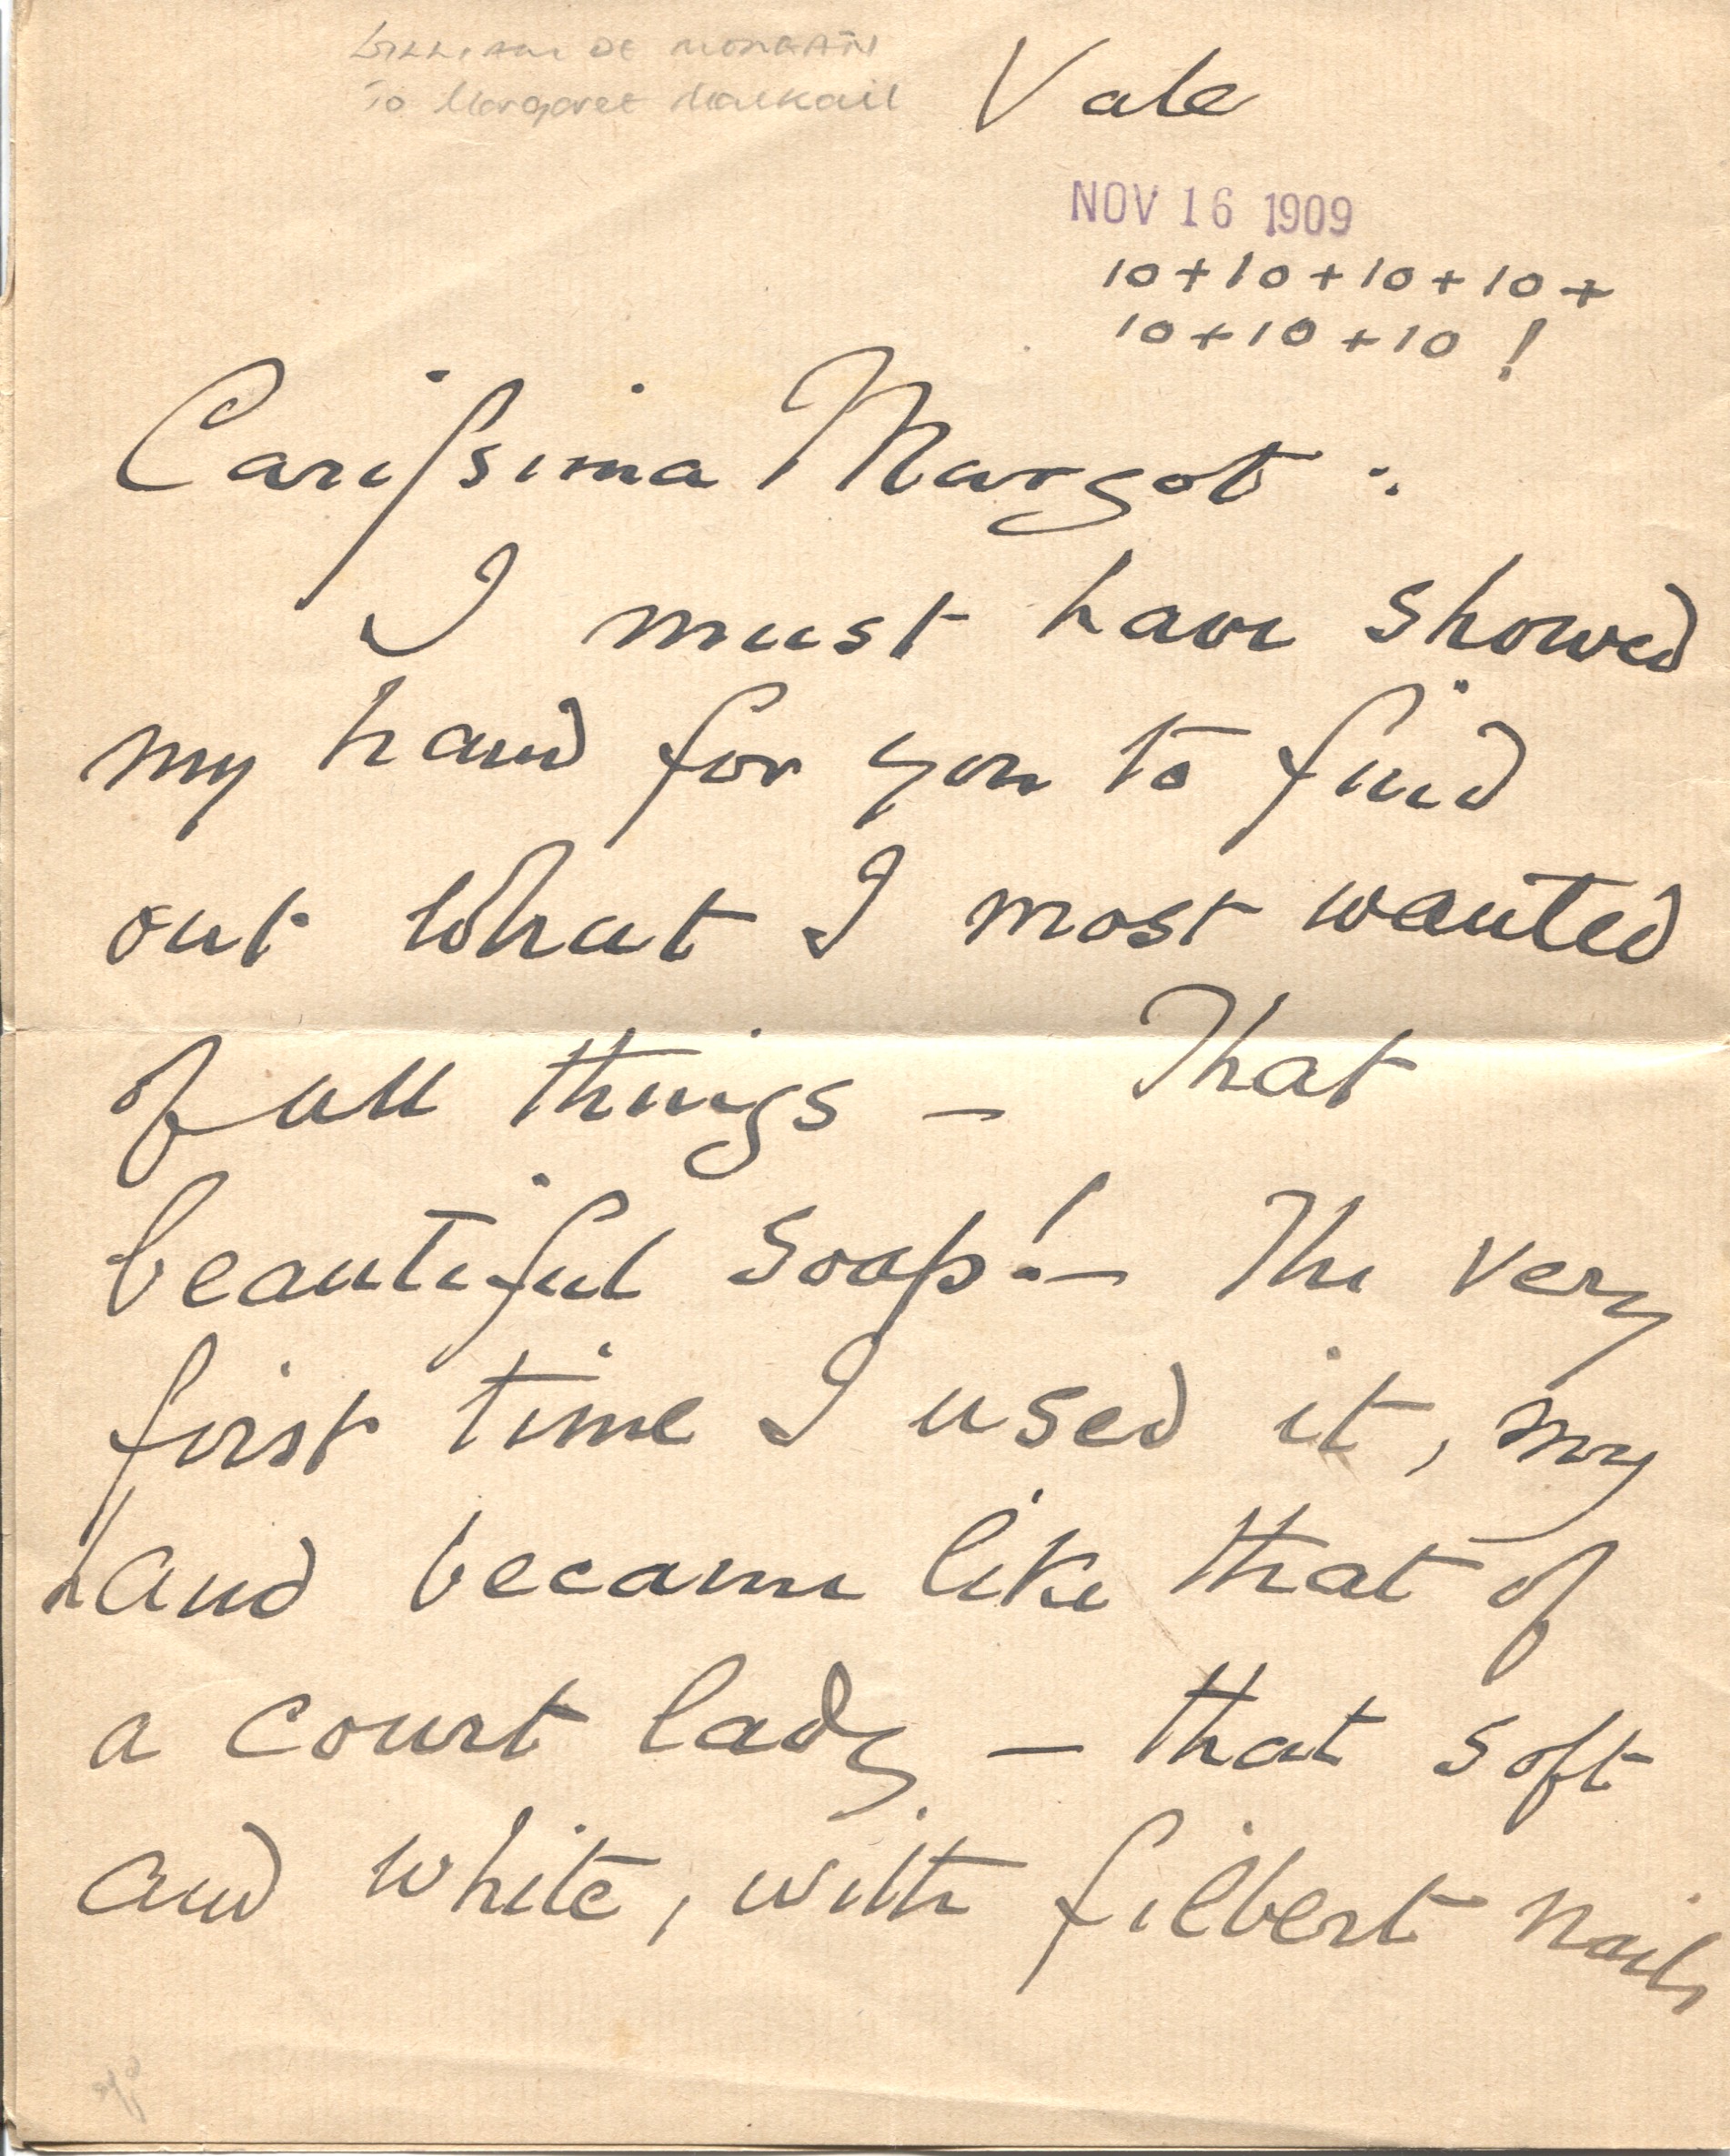 WILLIAM DE MORGAN
To Margaret Mackail
Vale
NOV 16 1909
10+10+10+10+
10+10+10!
Carissima Margot:
I must have showed
my hand for you to find
out what I most wanted
of all things – That
beautiful soap! – The very
first time I used it, my
hand became like that of
a court lady – that soft
and white, with filbert nails